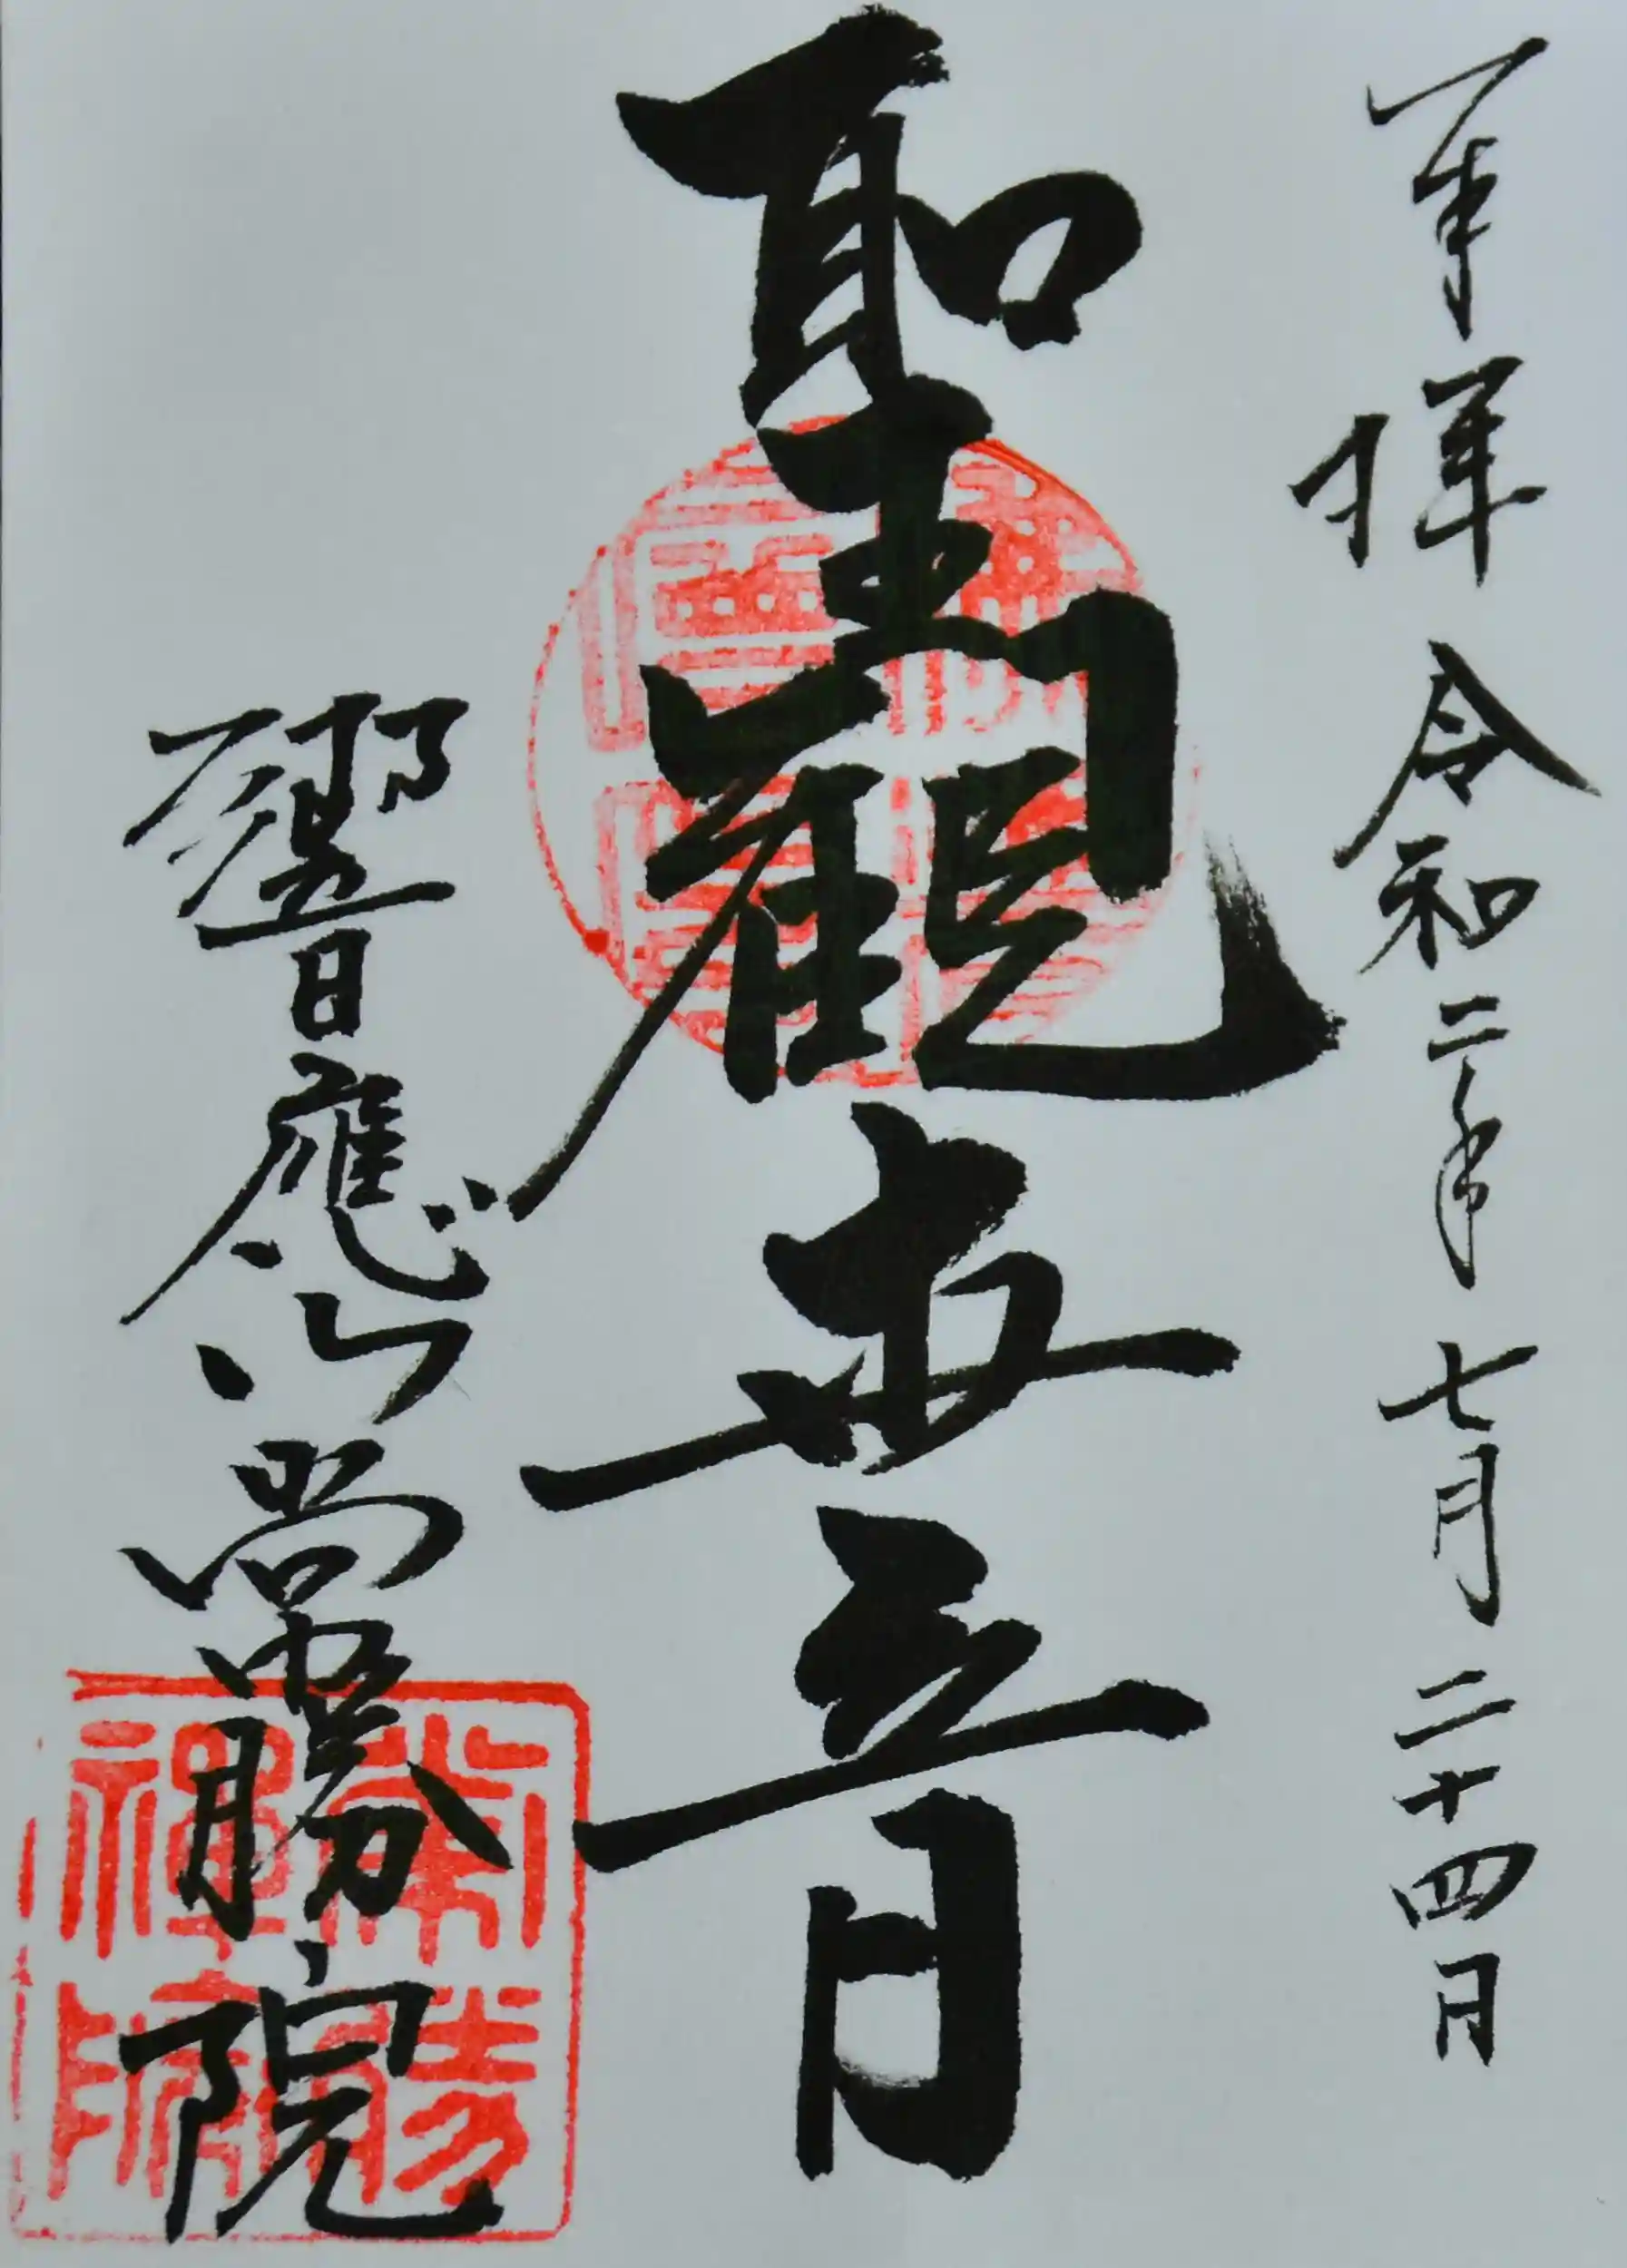 奉拝 令和二年七月二十四日
聖観世音
響應山常勝院
常勝
禪院